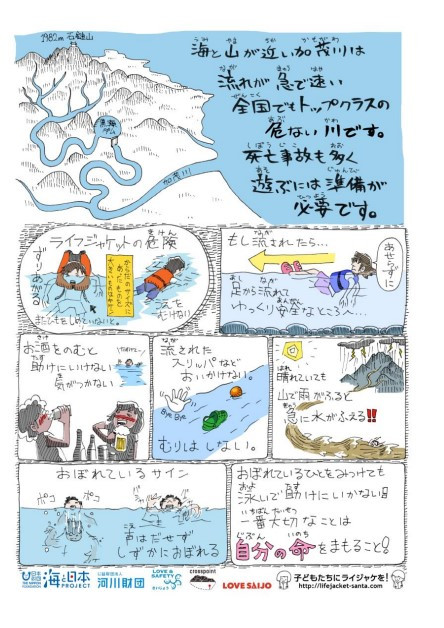 1982m 石鎚山
黒瀬ダム
加茂川
海と山が近い加茂川は
流れが急で速い
全国でもトップクラスの
危ない川です。
死亡事故も多く
遊ぶには準備が
必要です。
ライフジャケットの危険
ずりあがる
からだのサイズに
あたものを
うえを
むけない
またひもをしめていないと。
もし流されたら…
あせらずに
足から流れて
ゆっくり安全なところへ…
お酒をのむと
助けにいけない
気がつかない
流された
スリッパなど
おいかけない。
Bye Bye
むりはしない。
晴れていても
山で雨がふると
急に水がふえる!!
おぼれているサイン
ポコ
ポコ
声はだせず
しずかにおぼれる
おぼれているひとをみつけても
泳いで助けにいかない!
一番大切なことは
自分の命をまもること!
日本財団
THE NIPPON FOUNDATION
海と日本
PROJECT
公益財団法人
河川財団
LOVE & SAFETY
crosspoint
LOVE SAIJO
子どもたちにライジャケを!
http://lifejacket-santa.com/